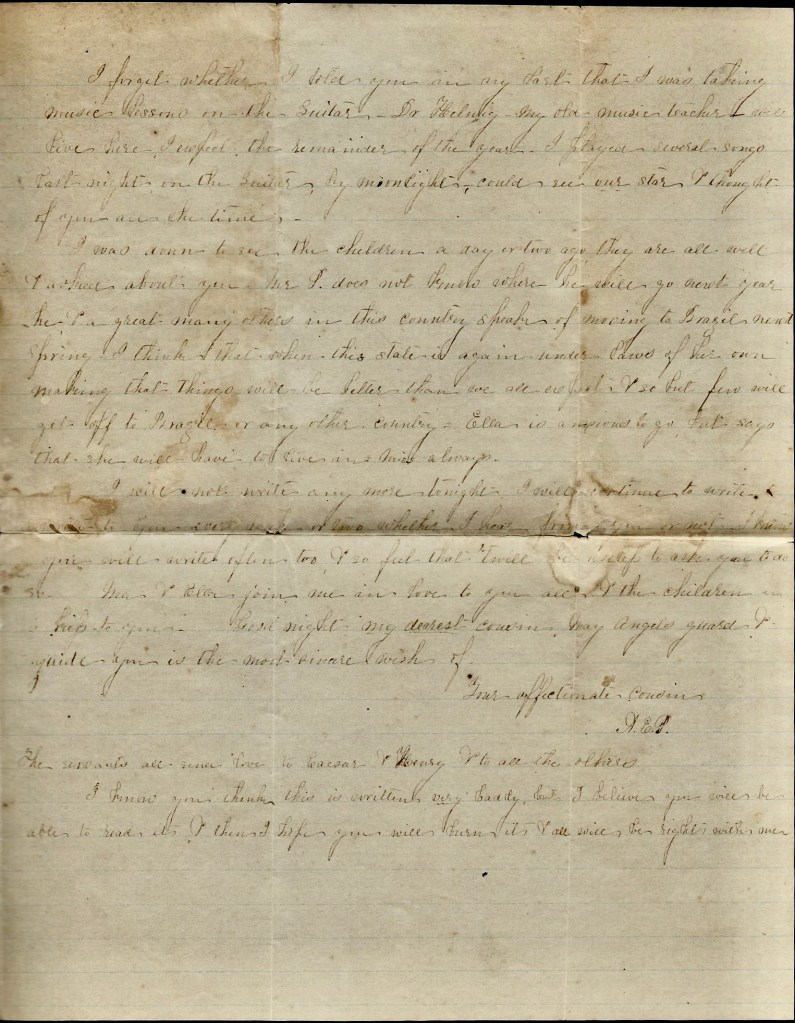 I forget whether I told you in my last that I was taking
music lessons on the Guitar - Dr Helwig my old music teacher - will
live here, I expect, the remainder of the year. I played several songs
last night on the Guitar, by moonlight, could see our star, & thought
of you all the time.
I was down to see the children a day or two ago they are all well
& asked about you. Mr P. does not know where he will go next year
he, & a great many others in this country speak of moving to Brazil next
Spring. I think that when this state is again under laws of her own
making that things will be better than we all expect & so but few will
get off to Brazil or any other country - Ella is anxious to go, but says
that she will have to live in Miss always.
I will not write any more tonight, I will continue to write
to you every week or two whether I hear from you or not. I know
you will write often too, & so feel that 'twill be to ask you to do
so. Ma & Ella join me in love to you all & the children in
a kiss to you - Good night my dearest cousin, May Angels guard &
guide you is the most sincere wish of
Your affectionate cousin
A.E.P.
The servants all send love to Caesar & Henry & to all the others
I know you think this is written very badly, but I believe you will be
able to read it, & then I hope you will burn it & all will be right with me